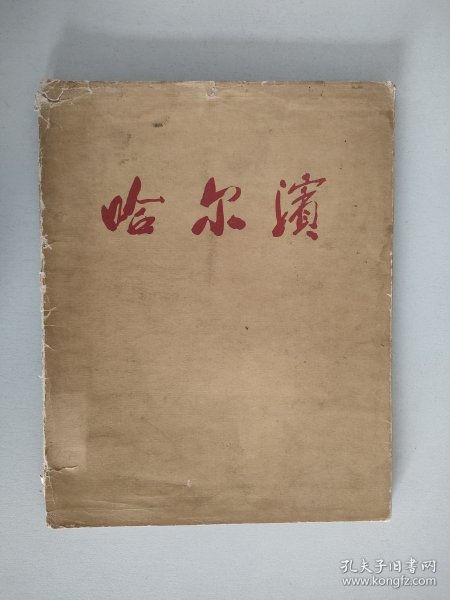 哈尔滨
孔夫子旧书网
www.kongfz.com